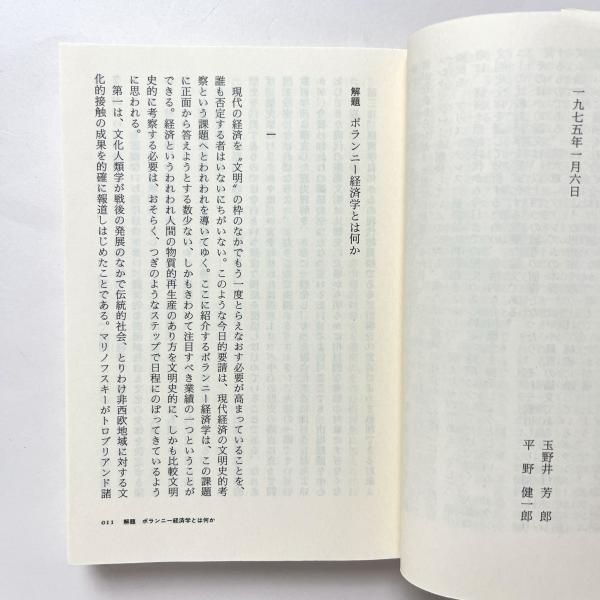 一九七五年一月六日
玉野井 芳郎
平野 健一郎
解題 ポランニー経済学とは何か
一
現代の経済を〝文明〟の枠のなかでもう一度とらえなおす必要が高まっていることを、
誰も否定する者はいないにちがいない。このような今日的要請は、現代経済の文明史的考
察という課題へとわれわれを導いてゆく。ここに紹介するポランニー経済学は、この課題
に正面から答えようとする数少ない、しかもきわめて注目すべき業績の一つということが
できる。経済というわれわれ人間の物質的再生産のあり方を文明史的に、しかも比較文明
史的に考察する必要は、おそらく、つぎのようなステップで日程にのぼってきているよう
に思われる。
第一は、文化人類学が戦後の発展のなかで伝統的社会、とりわけ非西欧地域に対する文
化的接触の成果を的確に報道しはじめたことである。マリノフスキーがトロブリアンド諸
011 解題 ポランニー経済学とは何か